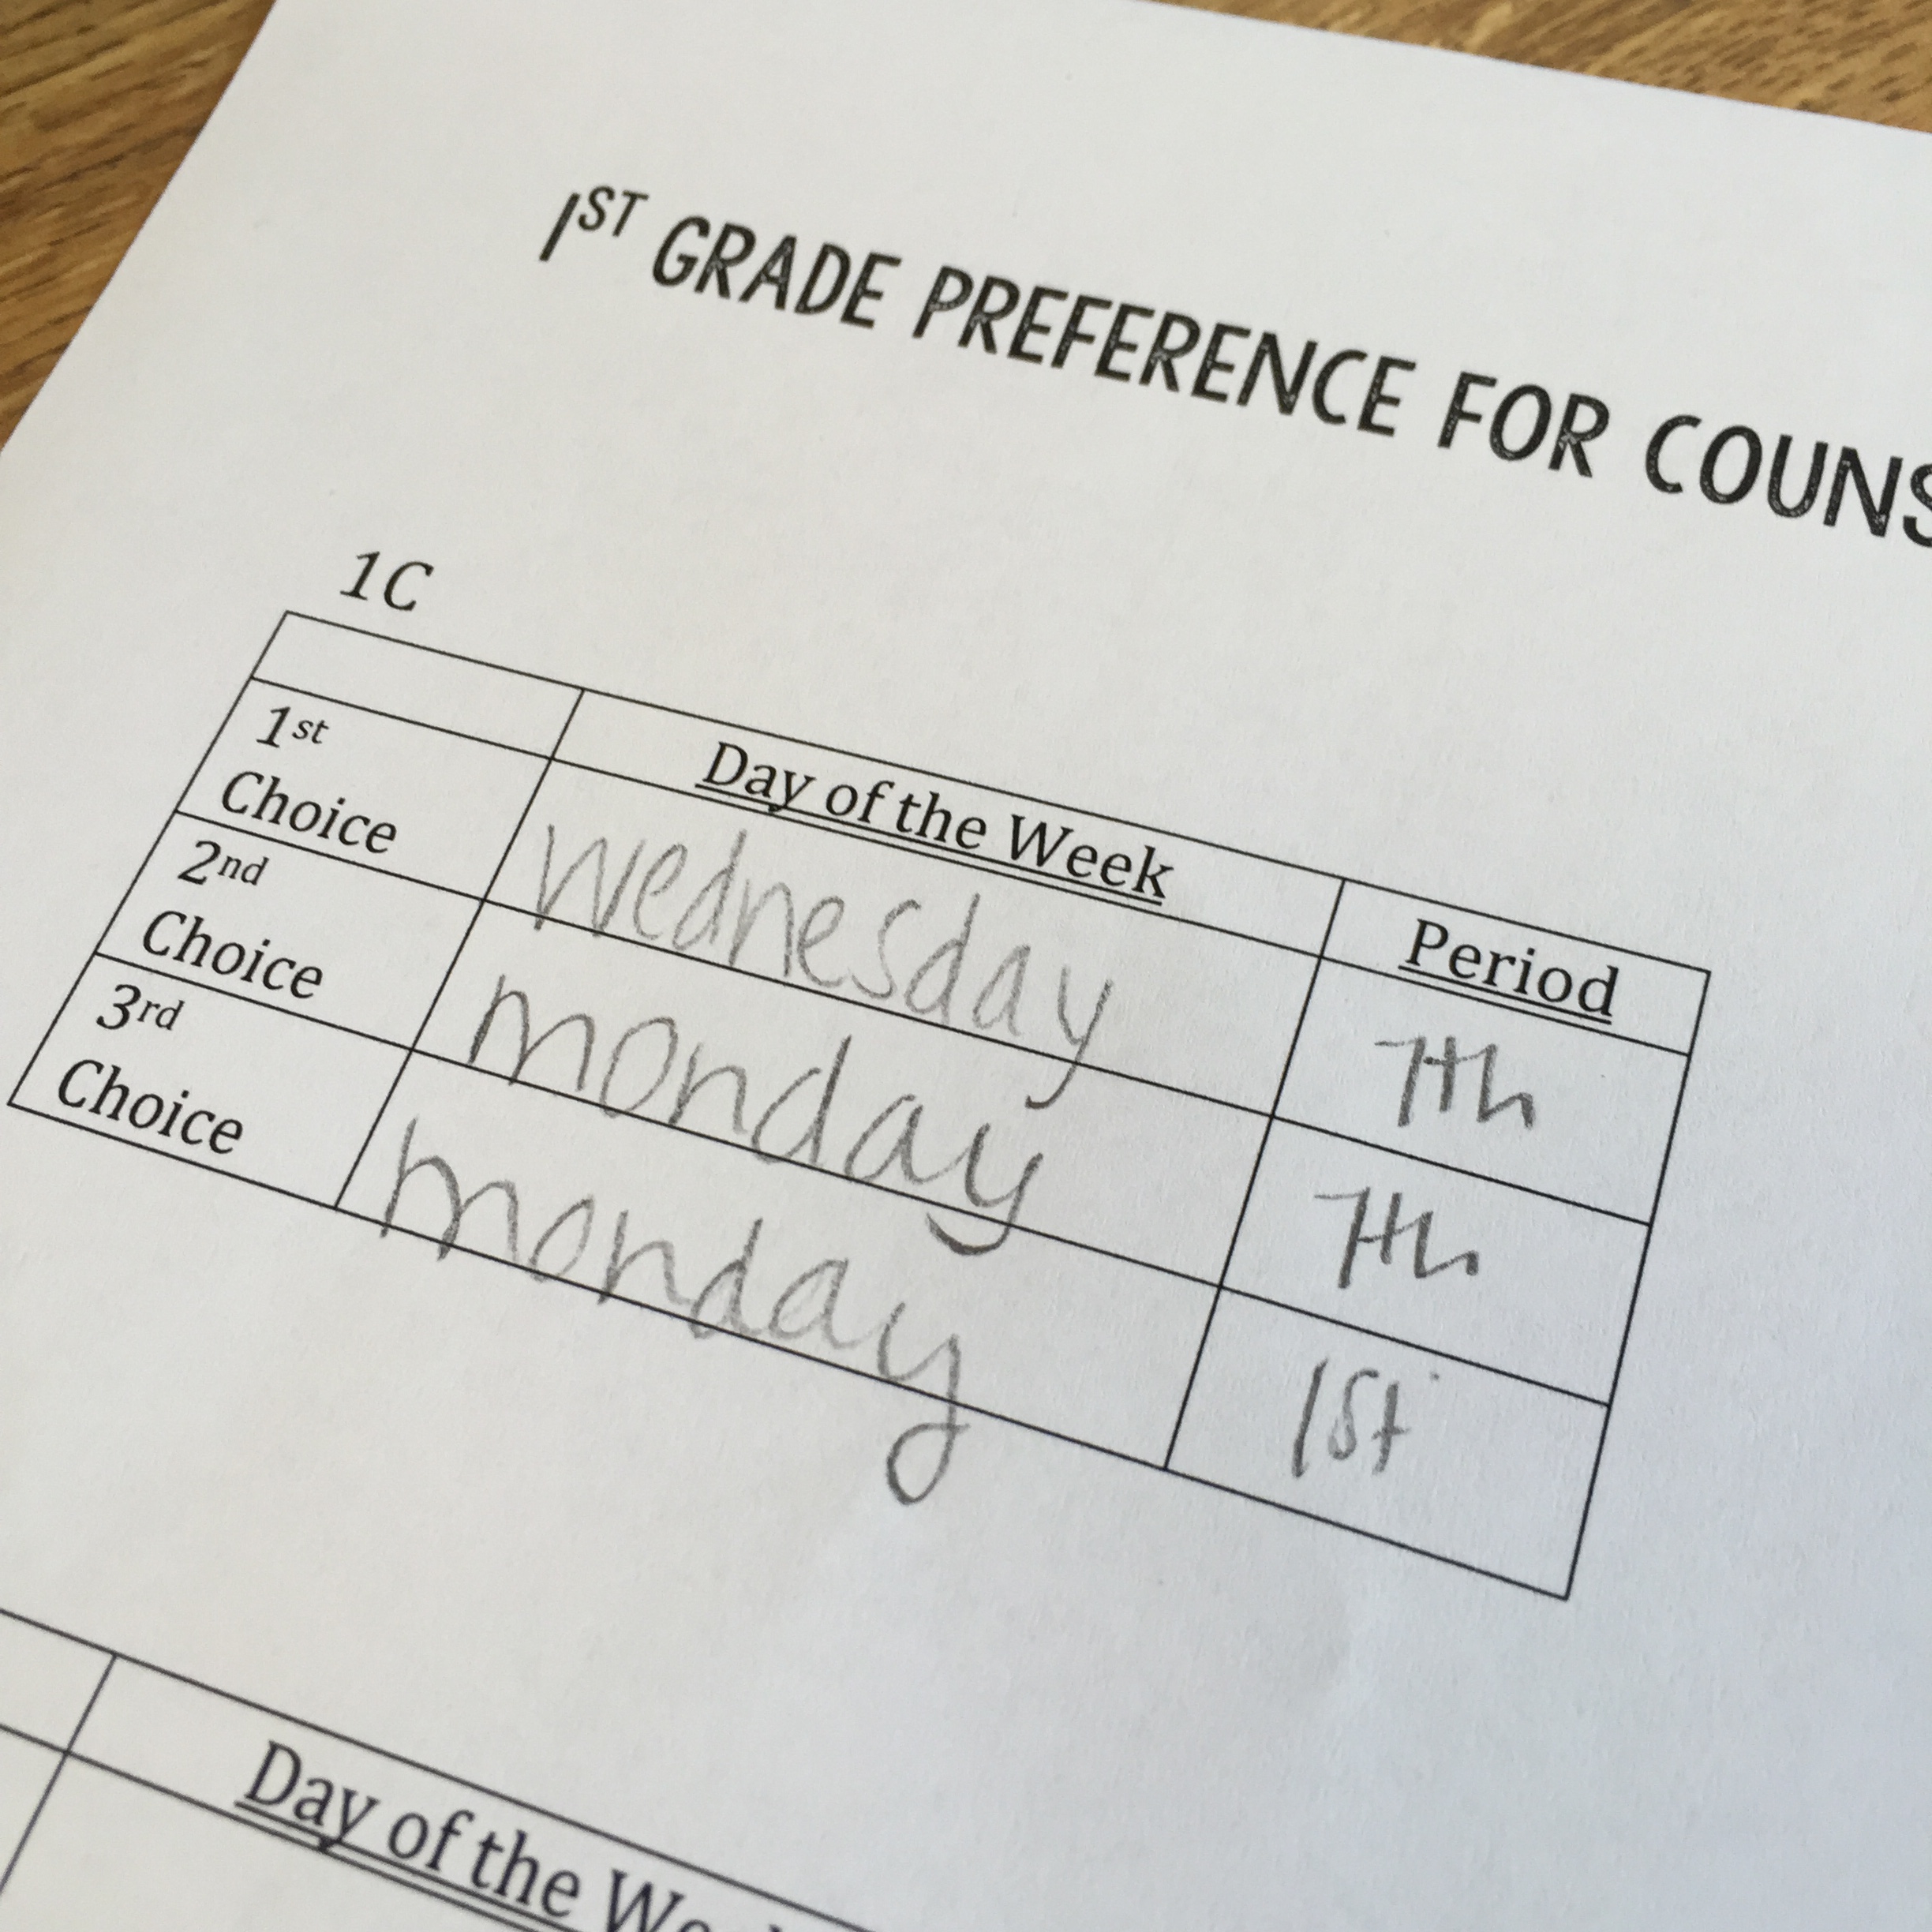 1ST GRADE PREFERENCE FOR COUNS
1C
Day of the Week Period
1st Choice wednesday 7th
2nd Choice monday 7th
3rd Choice monday 1st
Day of the Wee